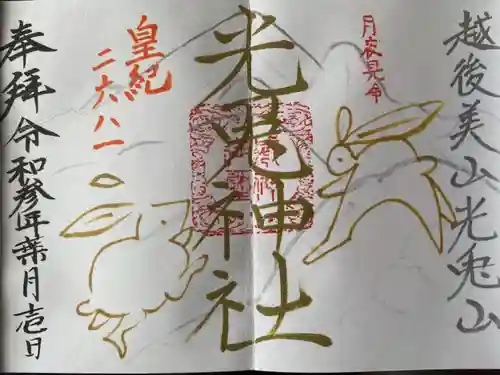 越後美山光兎山
月夜見命
光兎神社
皇紀
二六八一
奉拝令和参年葉月壱日